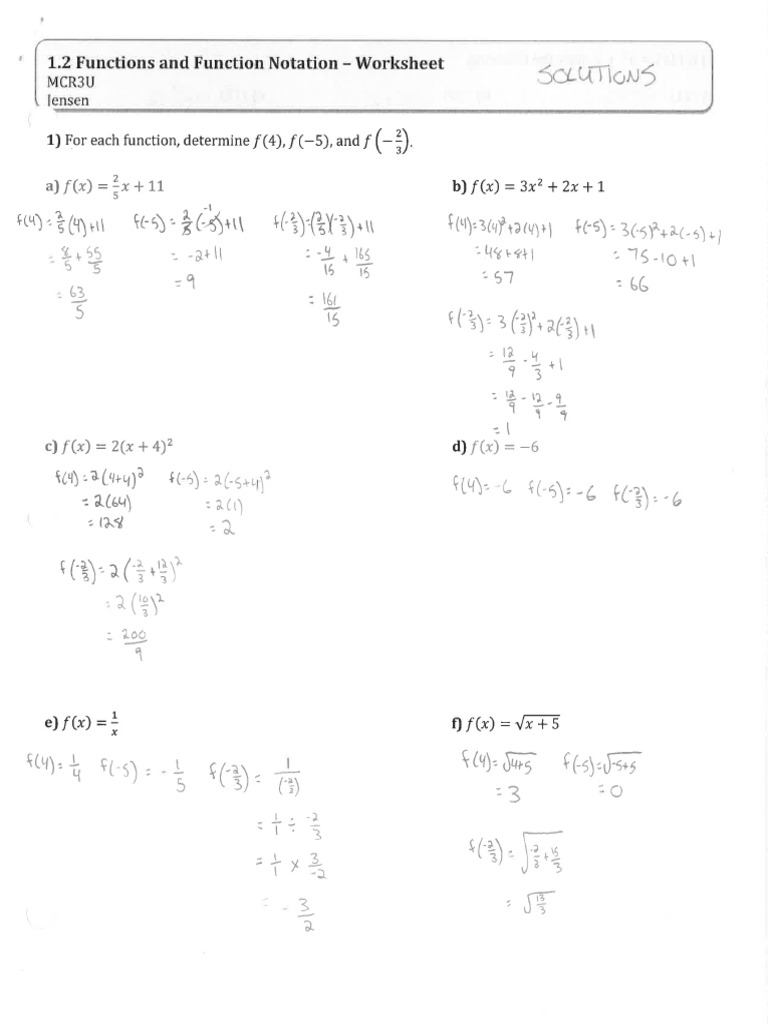 1.2 Functions and Function Notation – Worksheet
MCR3U
Jensen
SOLUTIONS
1) For each function, determine f(4), f(−5), and f(−2/3).
a) f(x) = 2/5 x + 11
f(4) = 2/5 (4) + 11
= 8/5 + 55/5
= 63/5
f(-5) = 2/5 (-5) + 11
-1
= -2 + 11
= 9
f(-2/3) = (2/5)(-2/3) + 11
= -4/15 + 165/15
= 161/15
b) f(x) = 3x² + 2x + 1
f(4) = 3(4)² + 2(4) + 1
= 48 + 8 + 1
= 57
f(-5) = 3(-5)² + 2(-5) + 1
= 75 - 10 + 1
= 66
f(-2/3) = 3(-2/3)² + 2(-2/3) + 1
= 12/9 - 4/3 + 1
= 12/9 - 12/9 - 9/9
= 1
c) f(x) = 2(x + 4)²
f(4) = 2(4+4)²
= 2(64)
= 128
f(-5) = 2(-5+4)²
= 2(1)
= 2
f(-2/3) = 2(-2/3 + 12/3)²
= 2(10/3)²
= 200/9
d) f(x) = −6
f(4) = -6 f(-5) = -6 f(-2/3) = -6
e) f(x) = 1/x
f(4) = 1/4 f(-5) = - 1/5 f(-2/3) = 1/(-2/3)
= 1/1 ÷ -2/3
= 1/1 × 3/-2
= - 3/2
f) f(x) = √(x + 5)
f(4) = √(4+5)
= 3
f(-5) = √(-5+5)
= 0
f(-2/3) = √(-2/3 + 15/3)
= √(13/3)